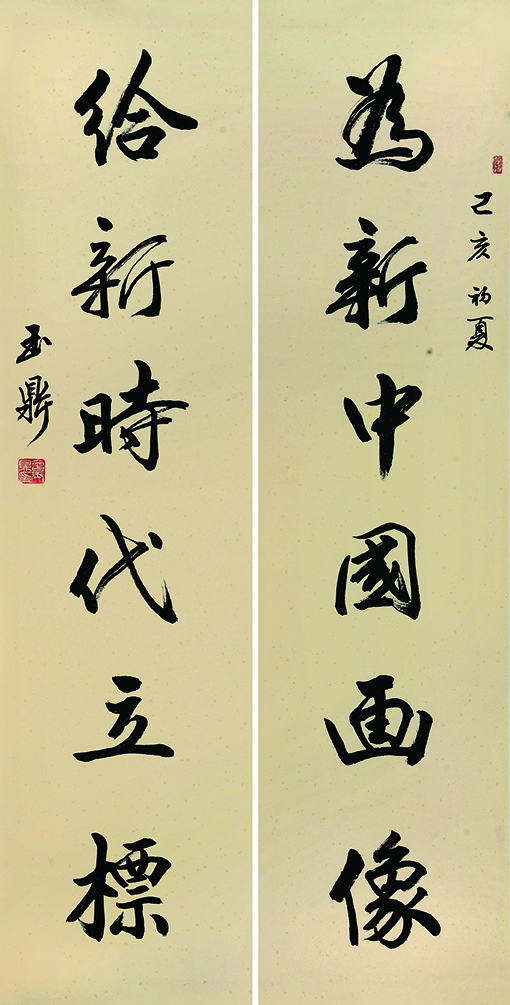 己亥初夏
為新中國画像
給新時代立標
玉鼎